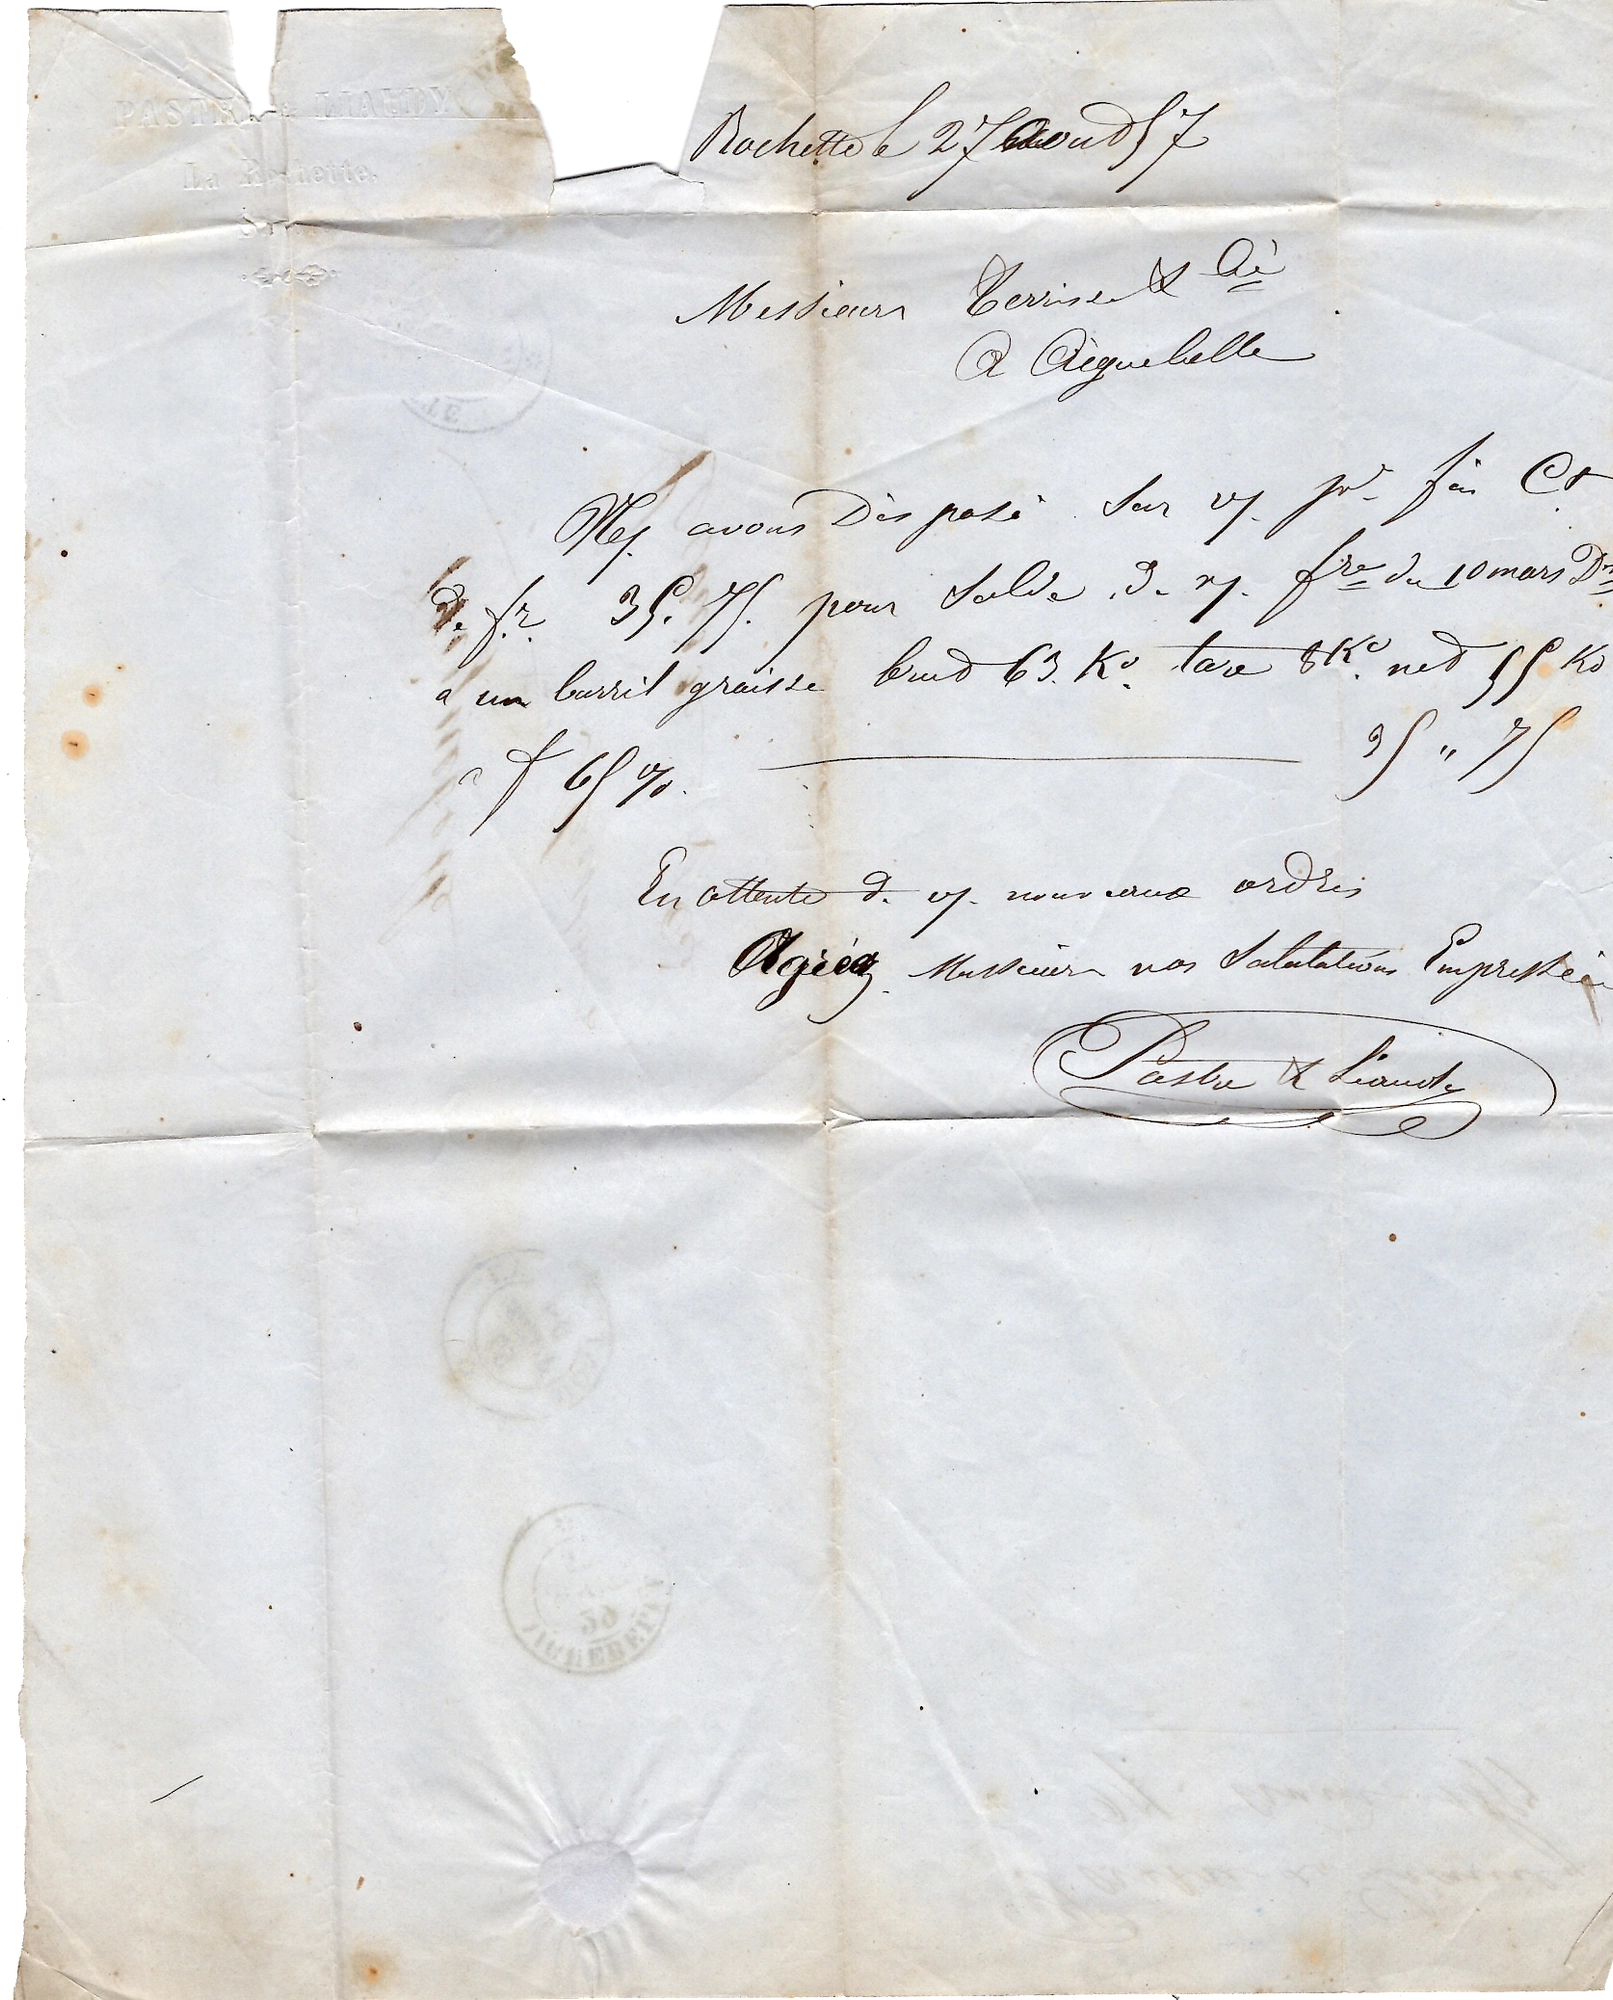 PASTRE & LIAUDY
La Rochette.
Rochette le 27 aoud 57
Messieurs Terrisse & Cie
A Aiguebelle
N/. avons Disposé sur v/. pr. fin Ct
De fr. 35. 75. pour Solde D. n/. fre du 10 mars Dr
a un barril graisse brud 63. Ko. tare 8 Ko. net 55 Ko
a f 65 %. 35 " 75
En attente d. v/. nouveaux ordres
Agréez Messieurs nos Salutations Empressées
Pastre & Liaudy
29
AIGUEBELLE